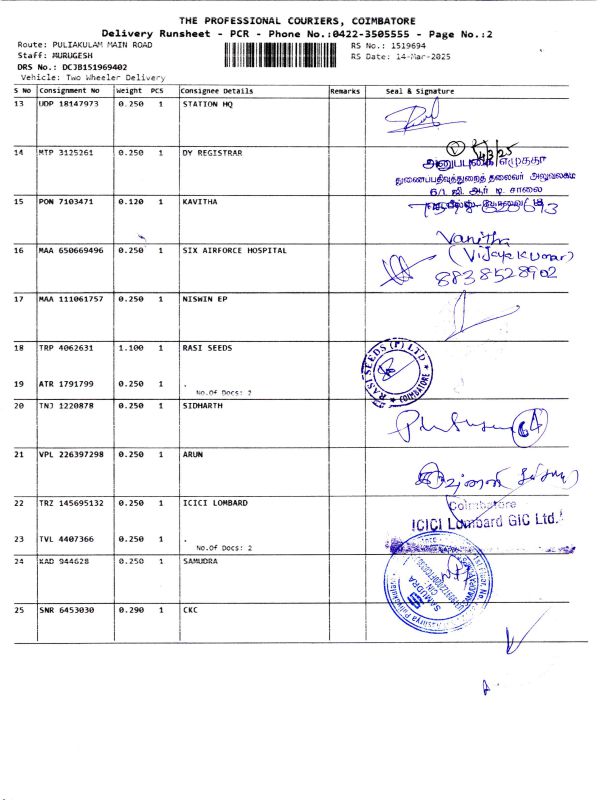 THE PROFESSIONAL COURIERS, COIMBATORE
Delivery Runsheet - PCR - Phone No.:0422-3505555 - Page No.:2
Route: PULIAKULAM MAIN ROAD
RS No.: 1519694
Staff: MURUGESH
RS Date: 14-Mar-2025
DRS No.: DCJB151969402
Vehicle: Two Wheeler Delivery
S No Consignment No Weight PCS Consignee Details Remarks Seal & Signature
13 UDP 18147973 0.250 1 STATION HQ
14 MTP 3125261 0.250 1 DY REGISTRAR
4/3/25
துணைப்பதிவுத்துறைத் தலைவர் அலுவலகம்
15 PON 7103471 0.120 1 KAVITHA
Vanitha
16 MAA 650669496 0.250 1 SIX AIRFORCE HOSPITAL
(Vijayakumar)
8838528902
17 MAA 111061757 0.250 1 NISWIN EP
18 TRP 4062631 1.100 1 RASI SEEDS
RASI SEEDS (P) LTD
COIMBATORE
19 ATR 1791799 0.250 1 .
No.Of Docs: 2
20 TNJ 1220878 0.250 1 SIDHARTH
21 VPL 226397298 0.250 1 ARUN
22 TRZ 145695132 0.250 1 ICICI LOMBARD
Coimbatore
ICICI Lombard GIC Ltd.
23 TVL 4407366 0.250 1 .
No.Of Docs: 2
24 KAD 944628 0.250 1 SAMUDRA
SAMUDRA
25 SNR 6453030 0.290 1 CKC